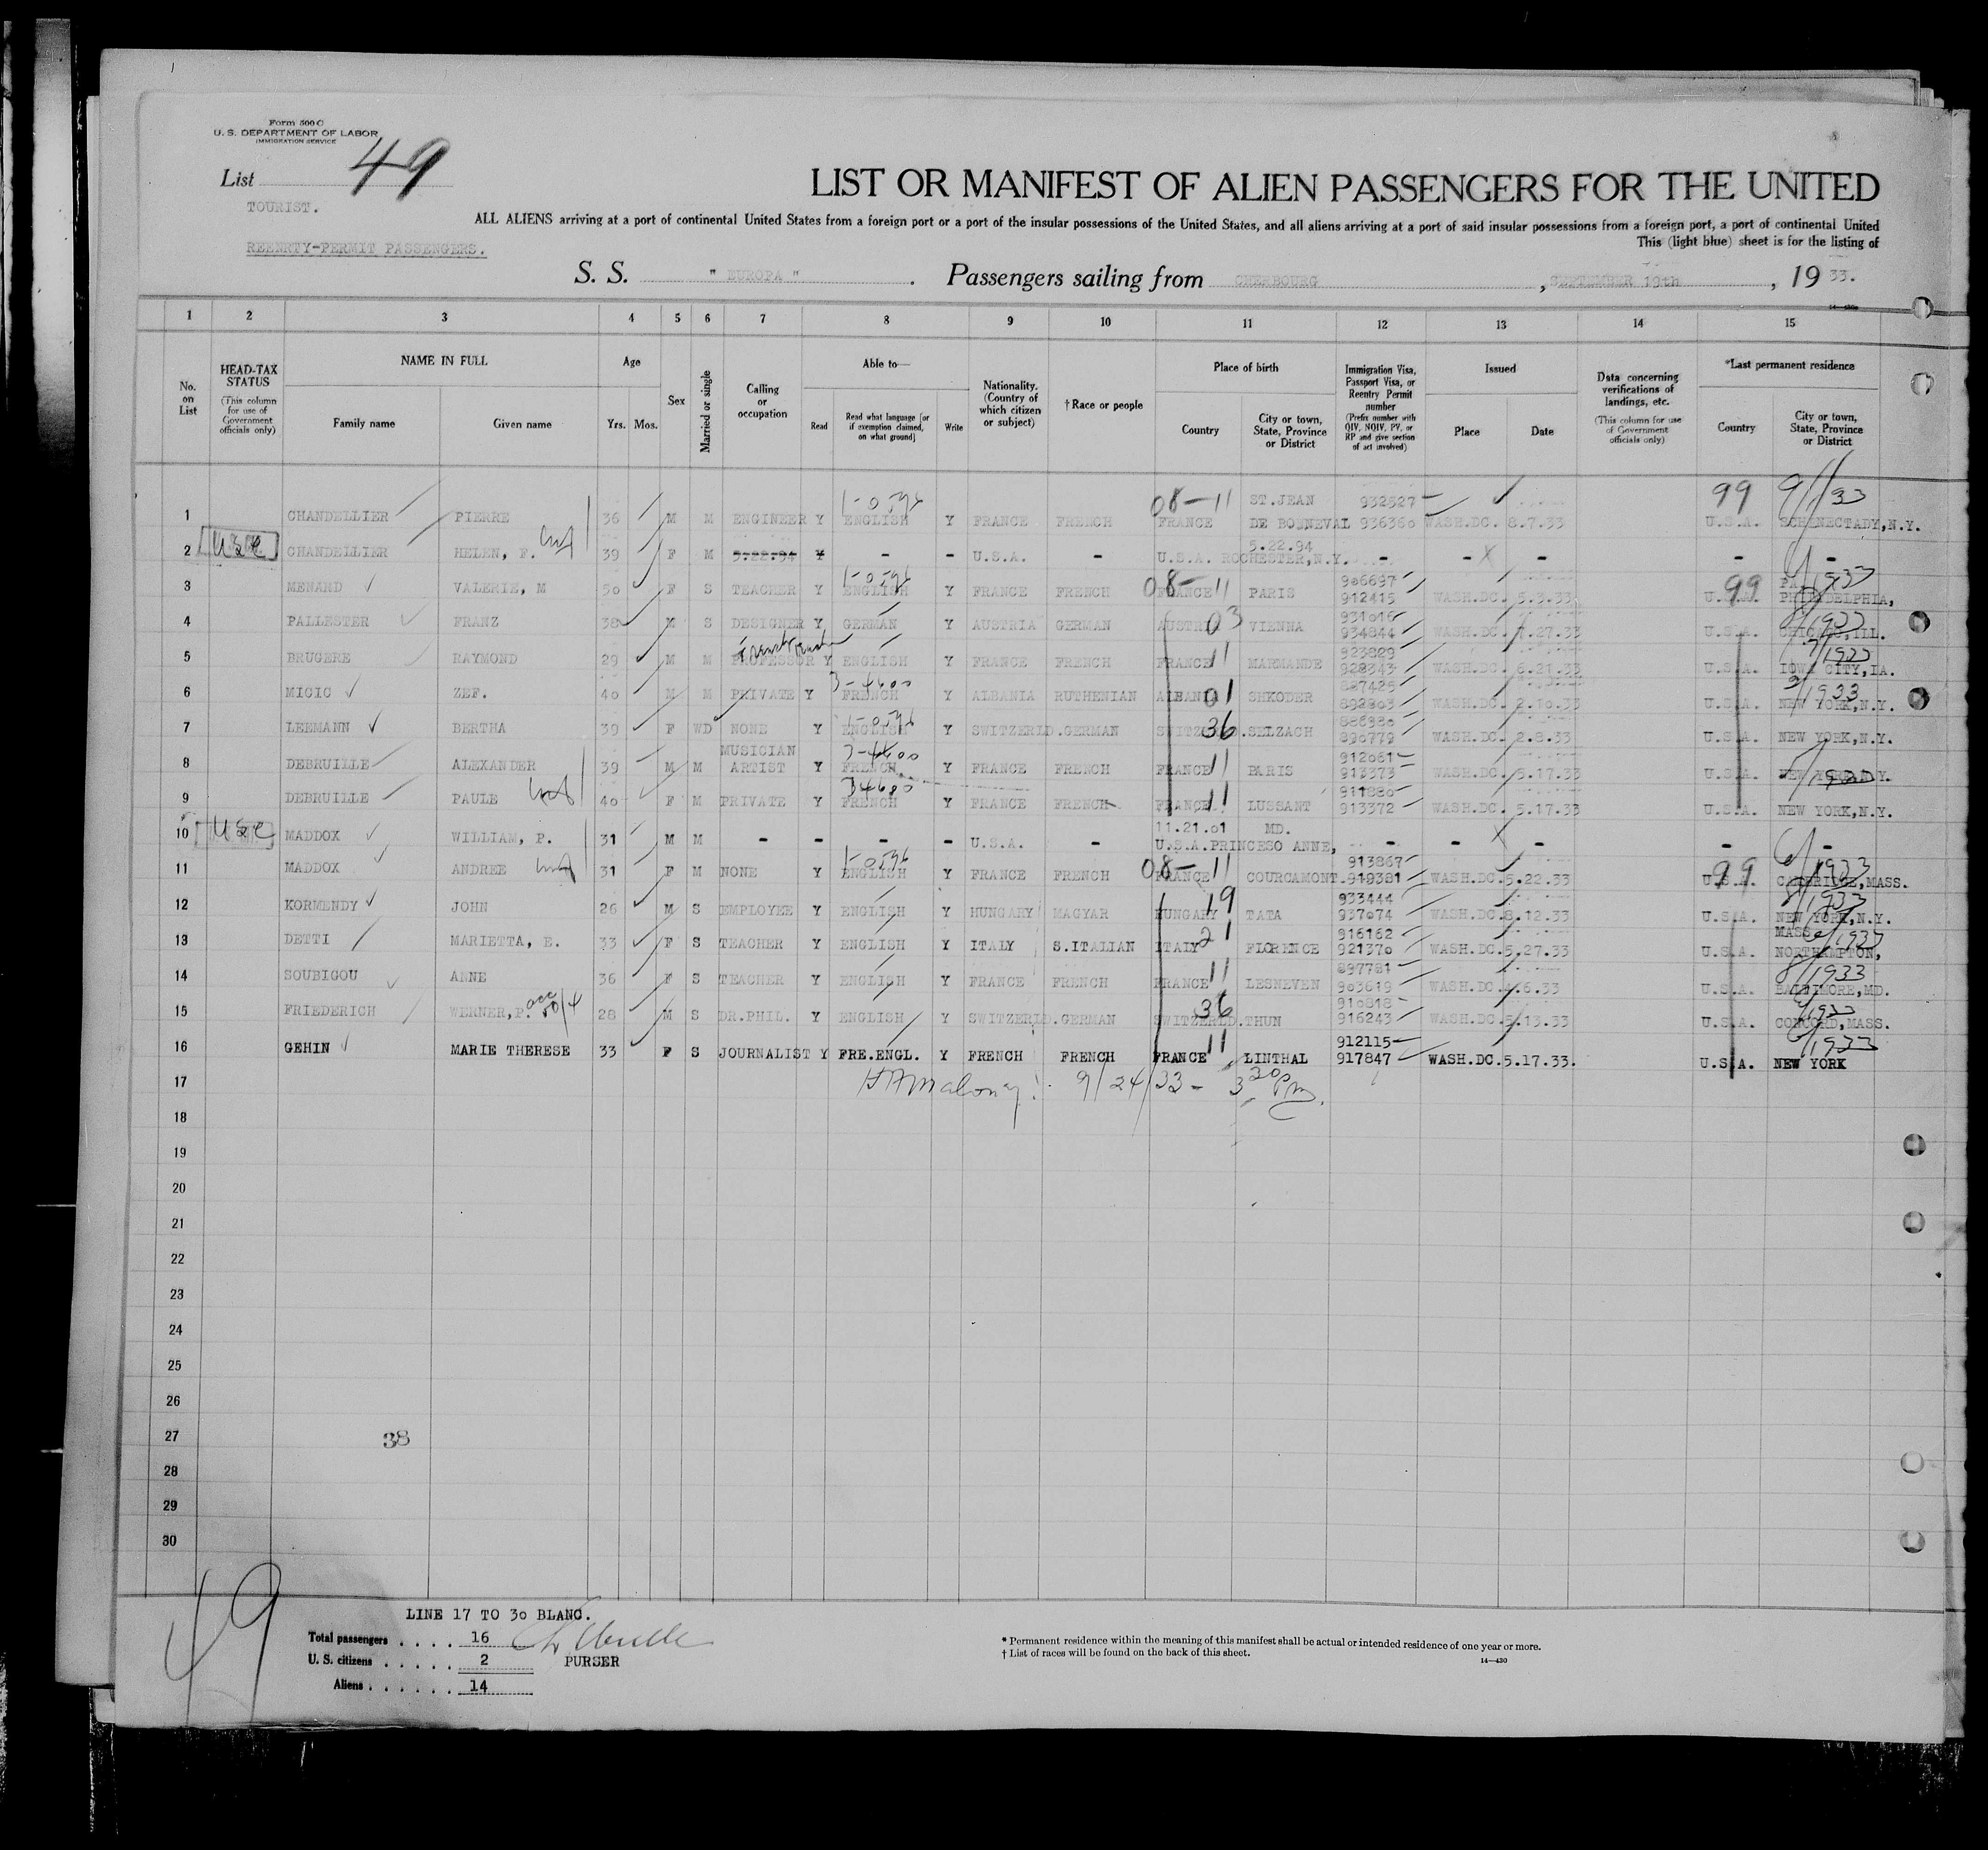 Form 500 C
U. S. DEPARTMENT OF LABOR
IMMIGRATION SERVICE
List 49
TOURIST.
REENRTY-PERMIT PASSENGERS.
LIST OR MANIFEST OF ALIEN PASSENGERS FOR THE UNITED
ALL ALIENS arriving at a port of continental United States from a foreign port or a port of the insular possessions of the United States, and all aliens arriving at a port of said insular possessions from a foreign port, a port of continental United
This (light blue) sheet is for the listing of
S. S. " EUROPA " . Passengers sailing from CHERBOURG , SEPTEMBER 19th , 19 33.
1 2 3 4 5 6 7 8 9 10 11 12 13 14 15
No. on List
HEAD-TAX STATUS (This column for use of Government officials only)
NAME IN FULL
Family name Given name
Age
Yrs. Mos.
Sex
Married or single
Calling or occupation
Able to—
Read Read what language [or if exemption claimed, on what ground] Write
Nationality. (Country of which citizen or subject)
†Race or people
Place of birth
Country City or town, State, Province or District
Immigration Visa, Passport Visa, or Reentry Permit number (Prefix number with QIV, NQIV, PV, or RP and give section of act involved)
Issued
Place Date
Data concerning verifications of landings, etc. (This column for use of Government officials only)
*Last permanent residence
Country City or town, State, Province or District
08-11 ST.JEAN 932527 99 9/1933
1 CHANDELLIER PIERRE 36 M M ENGINEER Y ENGLISH Y FRANCE FRENCH FRANCE DE BOSNEVAL 936360 WASH.DC. 8.7.33 U.S.A. SCHENECTADY,N.Y.
5.22.94
2 USC CHANDELLIER HELEN, F. 39 F M 5.22.94 Y - - U.S.A. - U.S.A. ROCHESTER,N.Y. - - - - -
906697 PA.
3 MENARD VALERIE, M 50 F S TEACHER Y ENGLISH Y FRANCE FRENCH 08- FRANCE 11 PARIS 912415 WASH.DC. 5.3.33 99 U.S.A. PHILADELPHIA,
931016
4 PALLESTER FRANZ 38 M S DESIGNER Y GERMAN Y AUSTRIA GERMAN AUSTRIA 03 VIENNA 934844 WASH.DC. 7.27.33 U.S.A. CHICAGO,ILL.
923829
5 BRUGERE RAYMOND 29 M M PROFESSOR Y ENGLISH Y FRANCE FRENCH FRANCE 11 MARMANDE 928343 WASH.DC. 6.21.33 U.S.A. IOWA CITY,IA.
887425
6 MICIC ZEF. 40 M M PRIVATE Y FRENCH Y ALBANIA RUTHENIAN ALBANIA 01 SHKODER 892803 WASH.DC. 2.10.33 U.S.A. NEW YORK,N.Y.
886980
7 LEEMANN BERTHA 39 F WD NONE Y ENGLISH Y SWITZERLD.GERMAN SWITZERLD. 36 SELZACH 890779 WASH.DC. 2.8.33 U.S.A. NEW YORK,N.Y.
MUSICIAN 912061
8 DEBRUILLE ALEXANDER 39 M M ARTIST Y FRENCH Y FRANCE FRENCH FRANCE 11 PARIS 913373 WASH.DC. 5.17.33 U.S.A. NEW YORK,N.Y.
911880
9 DEBRUILLE PAULE 40 F M PRIVATE Y FRENCH Y FRANCE FRENCH FRANCE 11 LUSSANT 913372 WASH.DC. 5.17.33 U.S.A. NEW YORK,N.Y.
11.21.01 MD.
10 USC MADDOX WILLIAM, P. 31 M M - - - - U.S.A. - U.S.A.PRINCESO ANNE, - - - - -
913867
11 MADDOX ANDREE 31 F M NONE Y ENGLISH Y FRANCE FRENCH 08- FRANCE 11 COURCAMONT. 919381 WASH.DC. 5.22.33 99 U.S.A. CAMBRIDGE,MASS.
933444
12 KORMENDY JOHN 26 M S EMPLOYEE Y ENGLISH Y HUNGARY MAGYAR HUNGARY 19 TATA 937074 WASH.DC. 8.12.33 U.S.A. NEW YORK,N.Y.
916162 MASS.
13 DETTI MARIETTA, E. 33 F S TEACHER Y ENGLISH Y ITALY S.ITALIAN ITALY 21 FLORENCE 921370 WASH.DC. 5.27.33 U.S.A. NORTHAMPTON,
897781
14 SOUBIGOU ANNE 36 F S TEACHER Y ENGLISH Y FRANCE FRENCH FRANCE 11 LESNEVEN 903619 WASH.DC. 4.6.33 U.S.A. BALTIMORE,MD.
910818
15 FRIEDERICH WERNER,P. 28 M S DR.PHIL. Y ENGLISH Y SWITZERLD.GERMAN SWITZERLD. 36 THUN 916243 WASH.DC. 5.13.33 U.S.A. CONCORD,MASS.
912115
16 GEHIN MARIE THERESE 33 F S JOURNALIST Y FRE.ENGL. Y FRENCH FRENCH FRANCE 11 LINTHAL 917847 WASH.DC.5.17.33. U.S.A. NEW YORK
17 9/24/33 - 3 20 PM.
18
19
20
21
22
23
24
25
26
27 38
28
29
30
49
LINE 17 TO 30 BLANC.
Total passengers . . . . 16
U. S. citizens . . . . . 2 PURSER
Aliens . . . . . . 14
* Permanent residence within the meaning of this manifest shall be actual or intended residence of one year or more.
† List of races will be found on the back of this sheet.
14—430